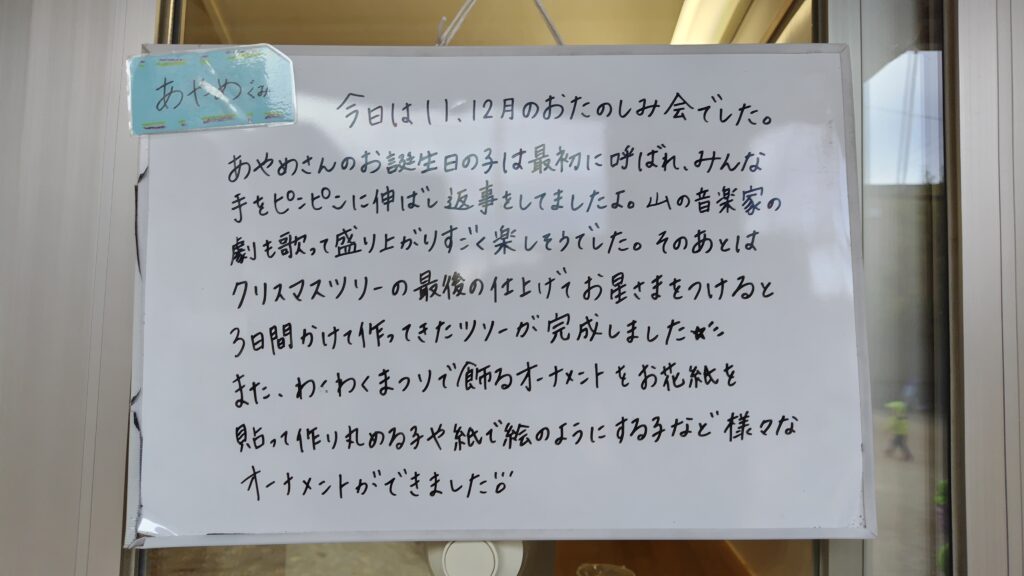 あやめぐみ
今日は11、12月のおたのしみ会でした。
あやめさんのお誕生日の子は最初に呼ばれ、みんな
手をピンピンに伸ばし返事をしてましたよ。山の音楽家の
劇も歌って盛り上がりすごく楽しそうでした。そのあとは
クリスマスツリーの最後の仕上げでお星さまをつけると
3日間かけて作ってきたツリーが完成しました☆
また、わくわくまつりで飾るオーナメントをお花紙を
貼って作り丸める子や紙で絵のようにする子など様々な
オーナメントができました